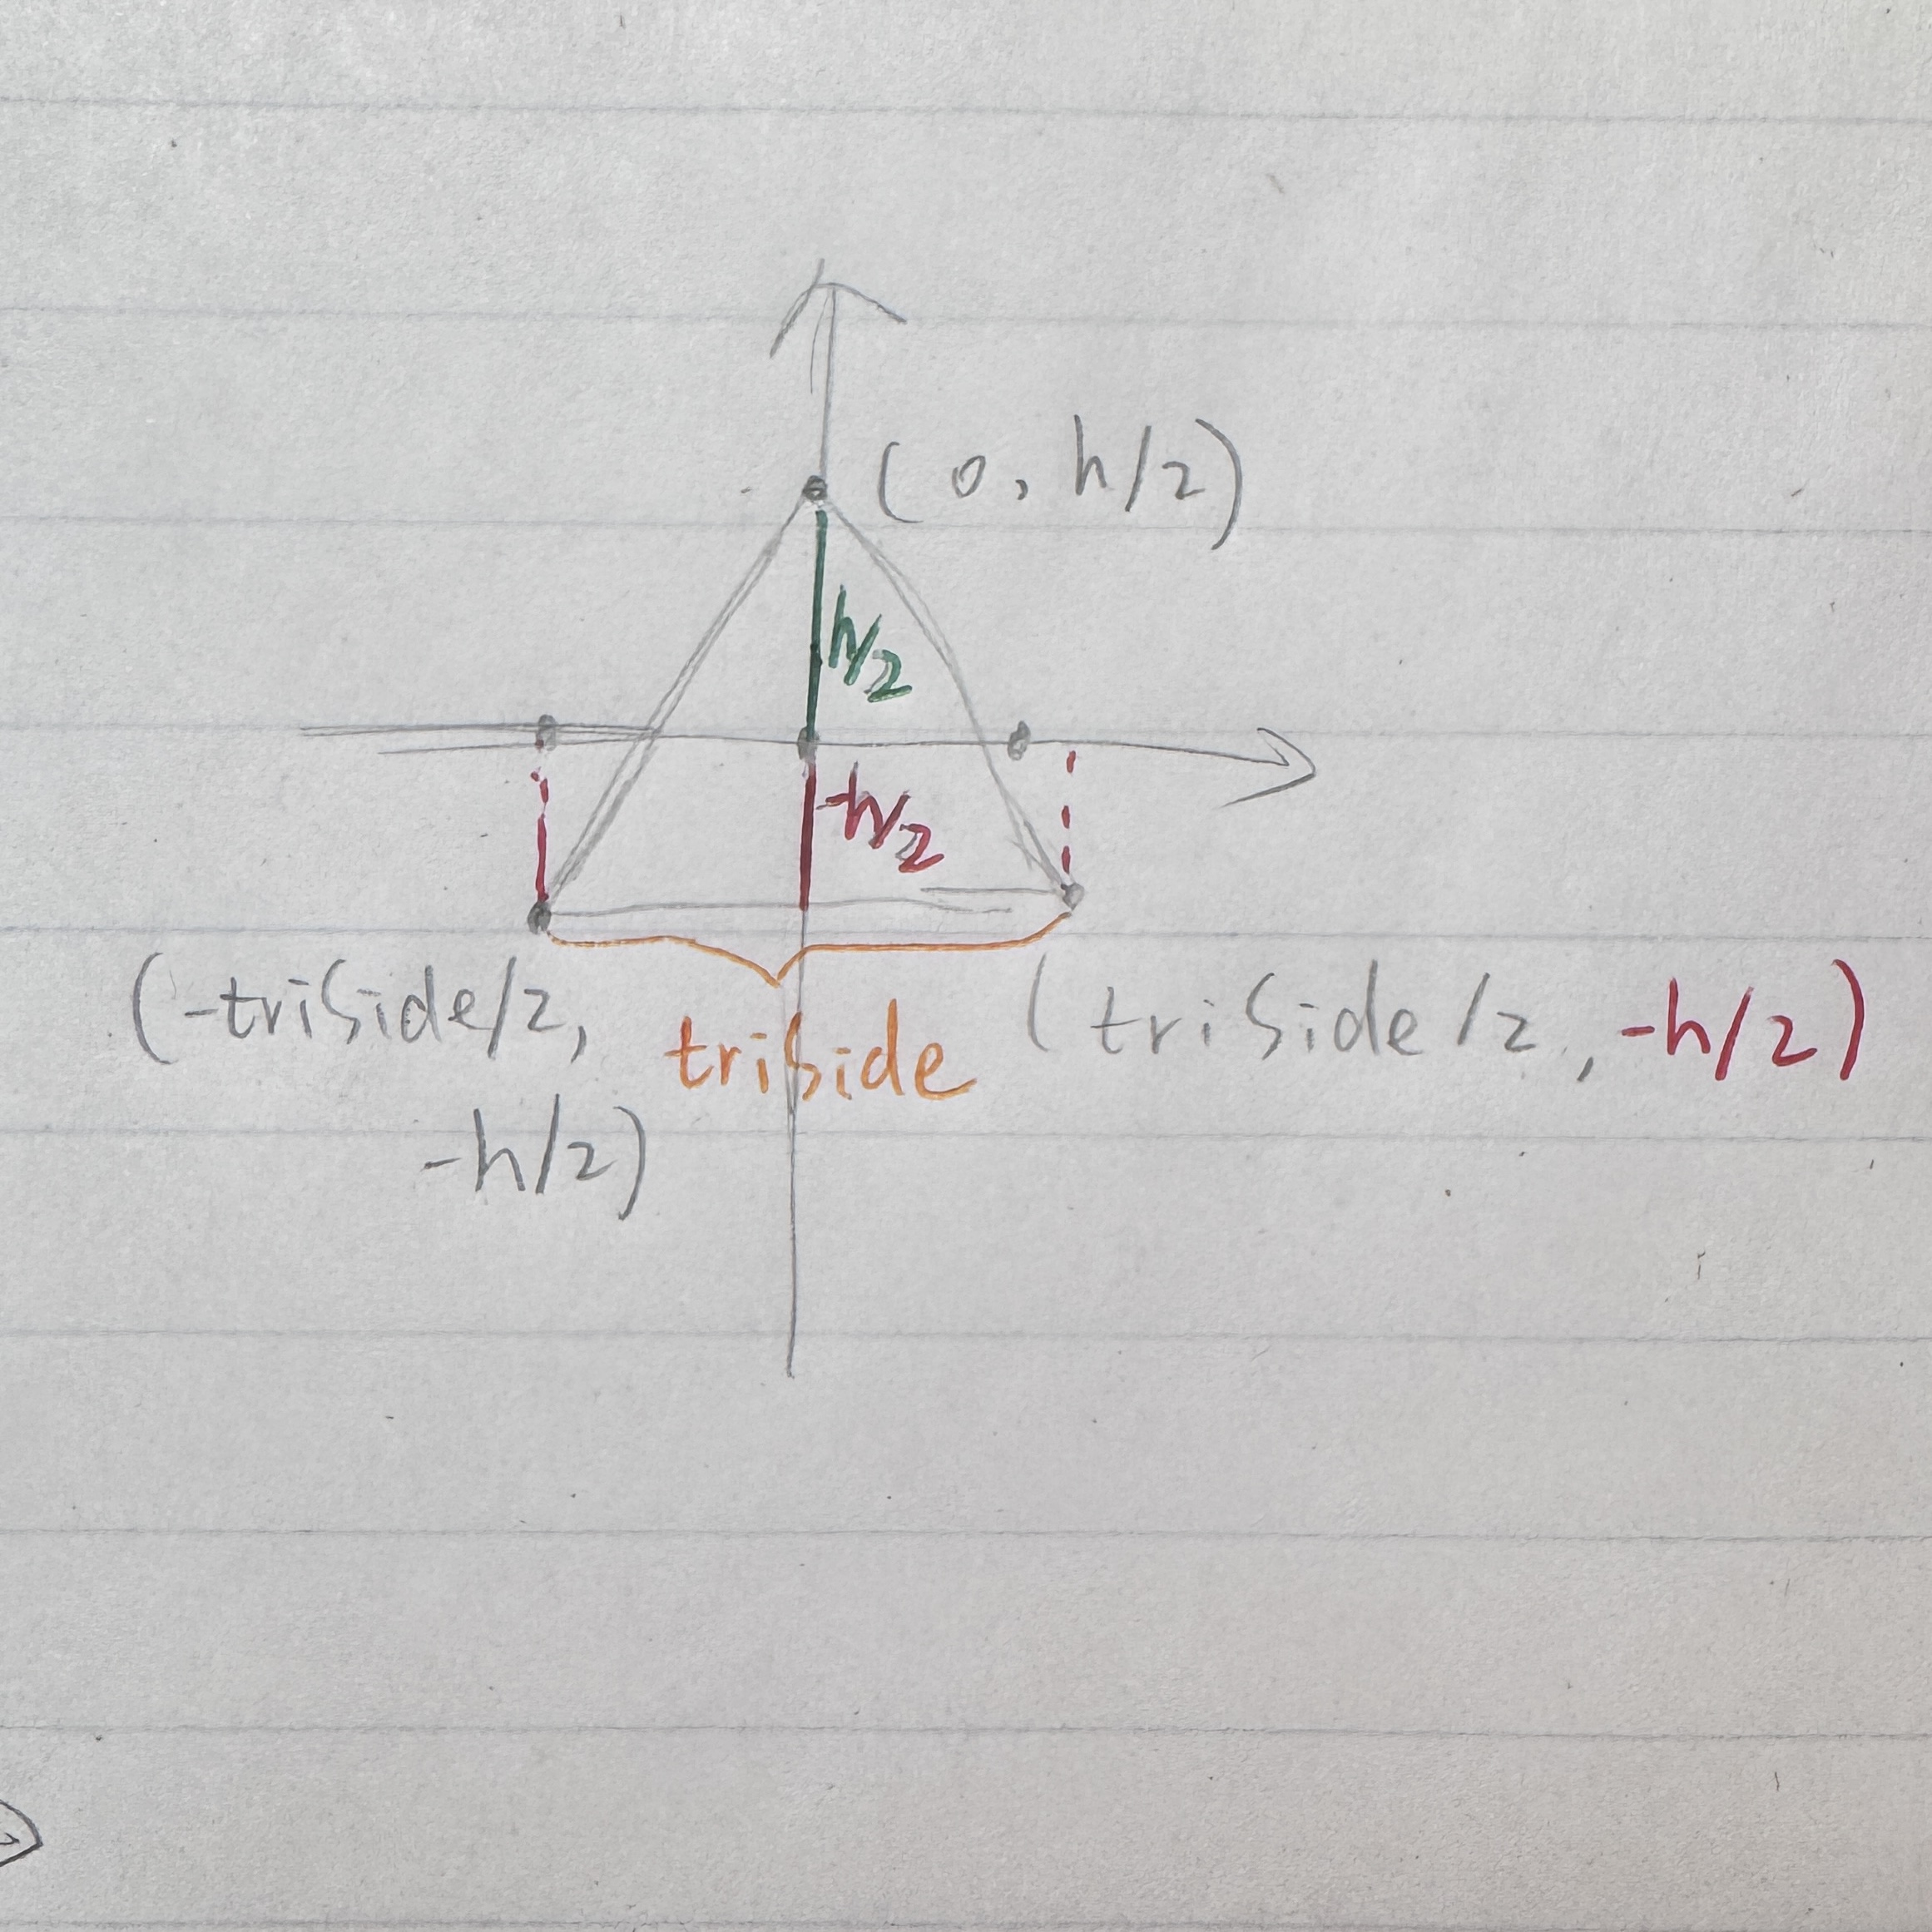 (0, h/2)
h/2
-h/2
(-triside/2,
-h/2)
triside
(triside/2, -h/2)